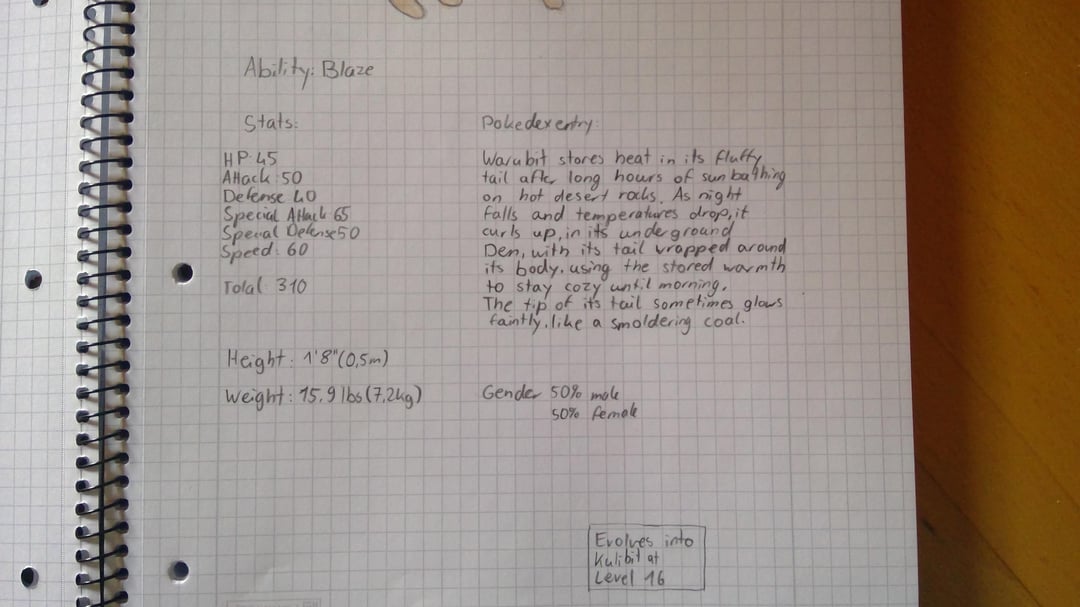 Ability: Blaze
Stats:
HP: 45
Attack: 50
Defense 40
Special Attack 65
Special Defense 50
Speed: 60
Total 310
Height: 1'8" (0,5m)
Weight: 15.9 lbs (7,2kg)
Pokedexentry:
Warabit stores heat in its fluffy
tail after long hours of sunbathing
on hot desert rocks. As night
falls and temperatures drop, it
curls up, in its underground
Den, with its tail wrapped around
its body, using the stored warmth
to stay cozy until morning.
The tip of its tail sometimes glows
faintly, like a smoldering coal.
Gender 50% male
50% female
Evolves into
Kulibit at
Level 16